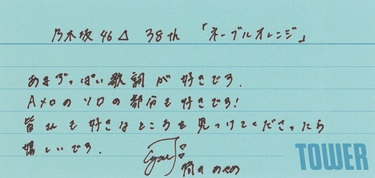 乃木坂46 38th 「ネーブルオレンジ」
あまずっぱい歌詞が好きです。
Aメロのソロの部分も好きです!
皆さんも好きなところを見つけてくださったら
嬉しいです。
TOWER